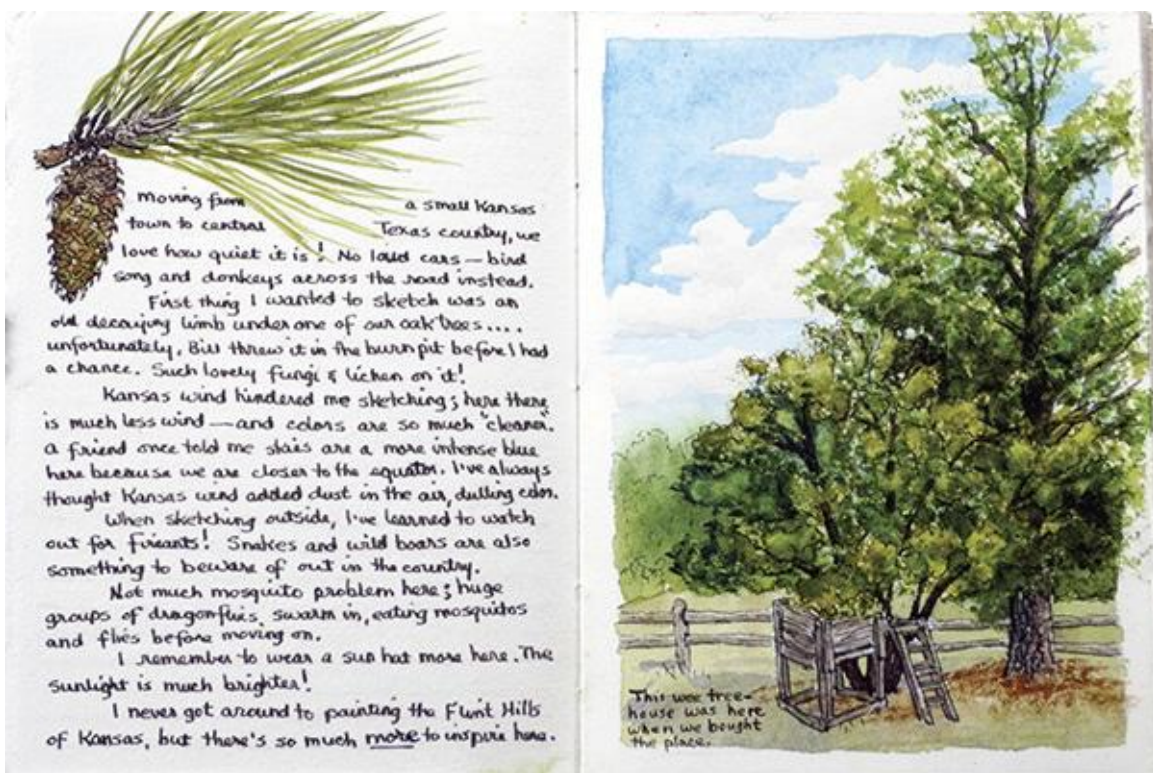 moving from a small Kansas
town to central Texas country, we
love how quiet it is! No loud cars — bird
song and donkeys across the road instead.
First thing I wanted to sketch was an
old decaying limb under one of our oak trees....
unfortunately, Bill threw it in the burn pit before I had
a chance. Such lovely fungi & lichen on it!
Kansas wind hindered me sketching; here there
is much less wind — and colors are so much "cleaner".
a friend once told me skies are a more intense blue
here because we are closer to the equator. I've always
thought Kansas wind added dust in the air, dulling color.
When sketching outside, I've learned to watch
out for fireants! Snakes and wild boars are also
something to beware of out in the country.
Not much mosquito problem here; huge
groups of dragonflies swarm in, eating mosquitos
and flies before moving on.
I remember to wear a sun hat more here. The
sunlight is much brighter!
I never got around to painting the Flint Hills
of Kansas, but there's so much more to inspire here.
This wee tree-
house was here
when we bought
the place.